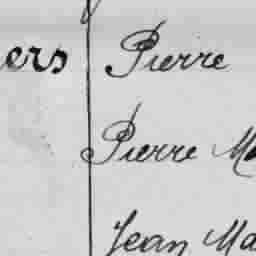 ers Pierre
Pierre Ma
Jean Ma